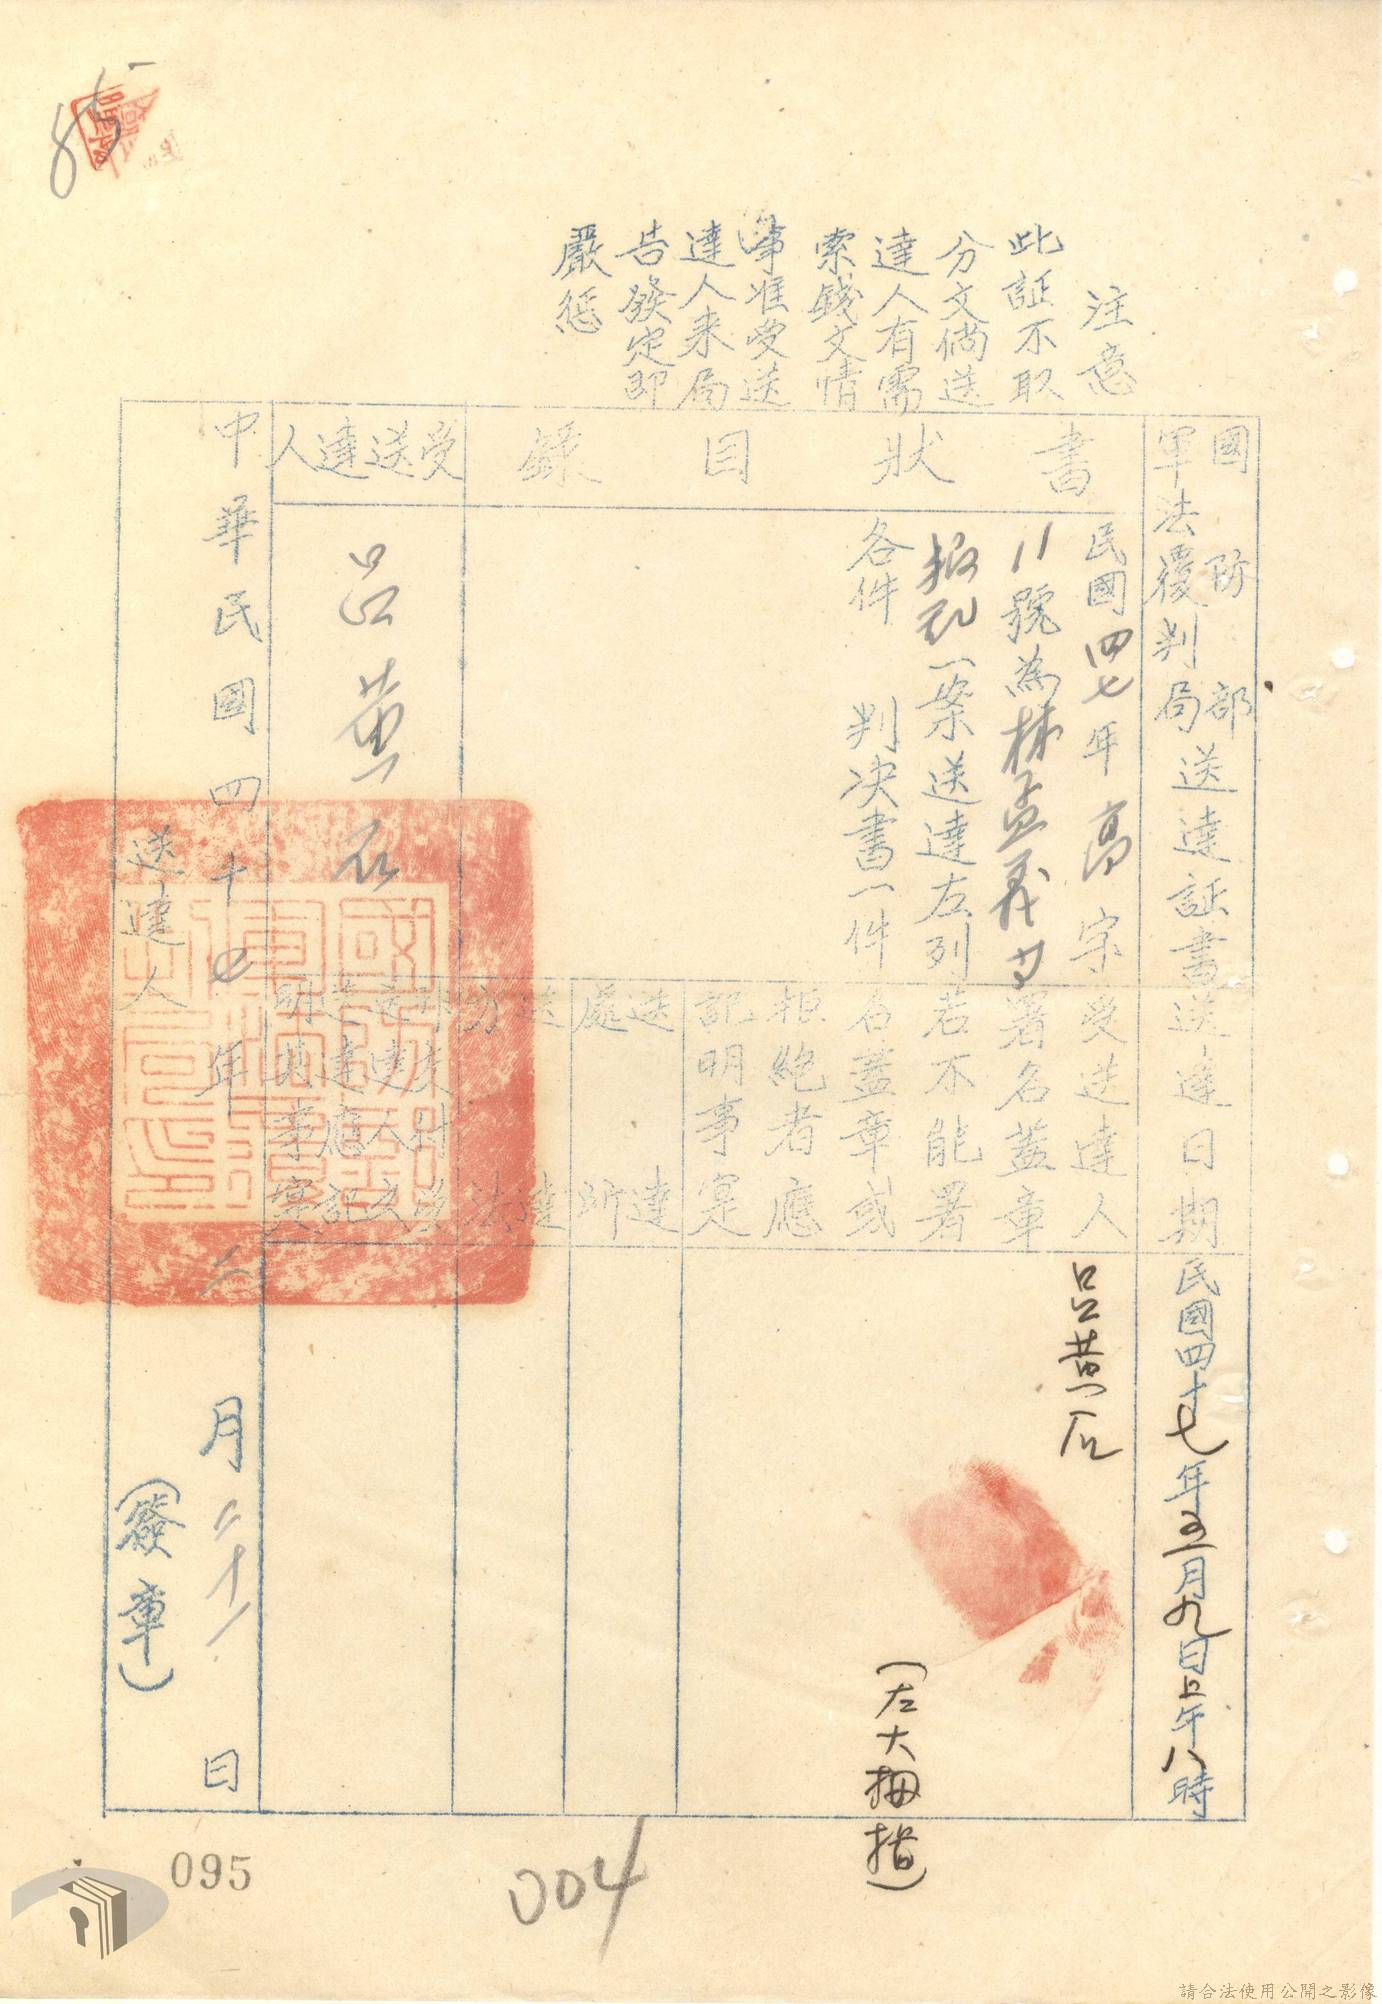 注意
此証不取
分文倘送
達人有需
索錢文情
事准受送
達人来局
告發定即
嚴惩
國防部
軍法覆判局送達証書
送達日期
民國四十七年五月九日上午八時
書狀目錄
民國四七年高字
11號為林孟義等
叛亂一案送達左列
各件 判决書一件
受送達人
署名蓋章
若不能署
名蓋章或
拒絶者應
記明事寔
呂黃石
(左大拇指)
送達
處所
送達
方法
受送達人
呂黃石
中華民國四十七年二月二十一日
送達人 (簽章)
85
095
004
請合法使用公開之影像